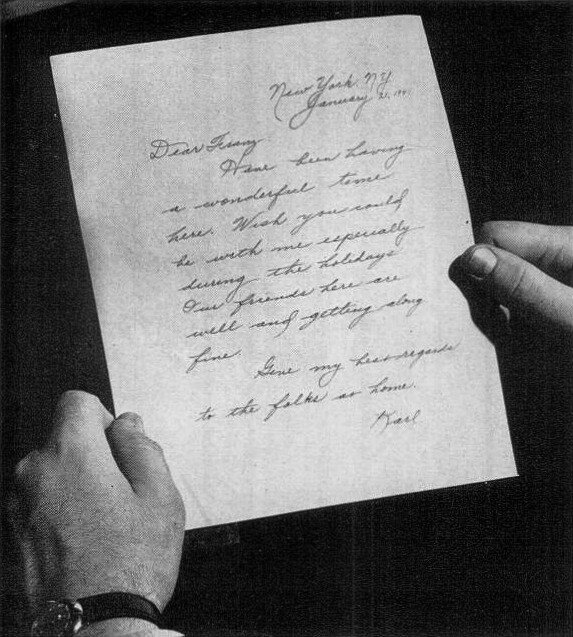 New York, NY
January 21, 1941
Dear Franz
Have been having
a wonderful time
here. Wish you could
be with me especially
during the holidays
Our friends here are
well and getting along
fine.
Give my best regards
to the folks at home.
Karl